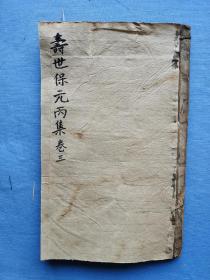 壽世保元丙集卷三